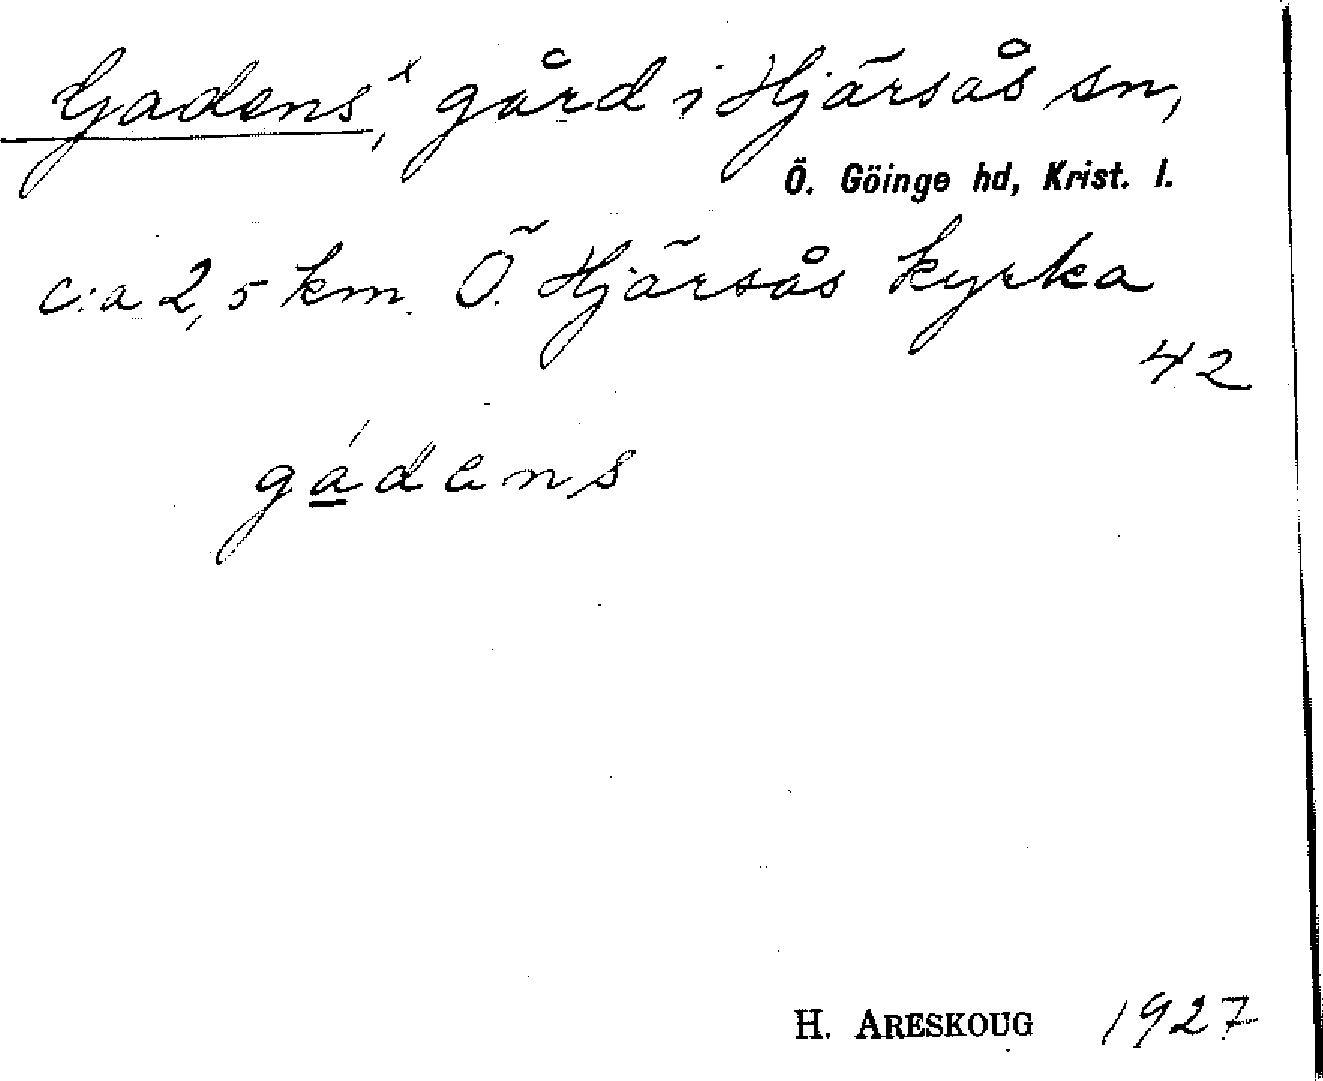 Gadens,ˣ gård i Hjärsås sn,
Ö. Göinge hd, Krist. l.
c:a 2,5 km. Ö. Hjärsås kyrka
42
gádens
H. ARESKOUG 1927